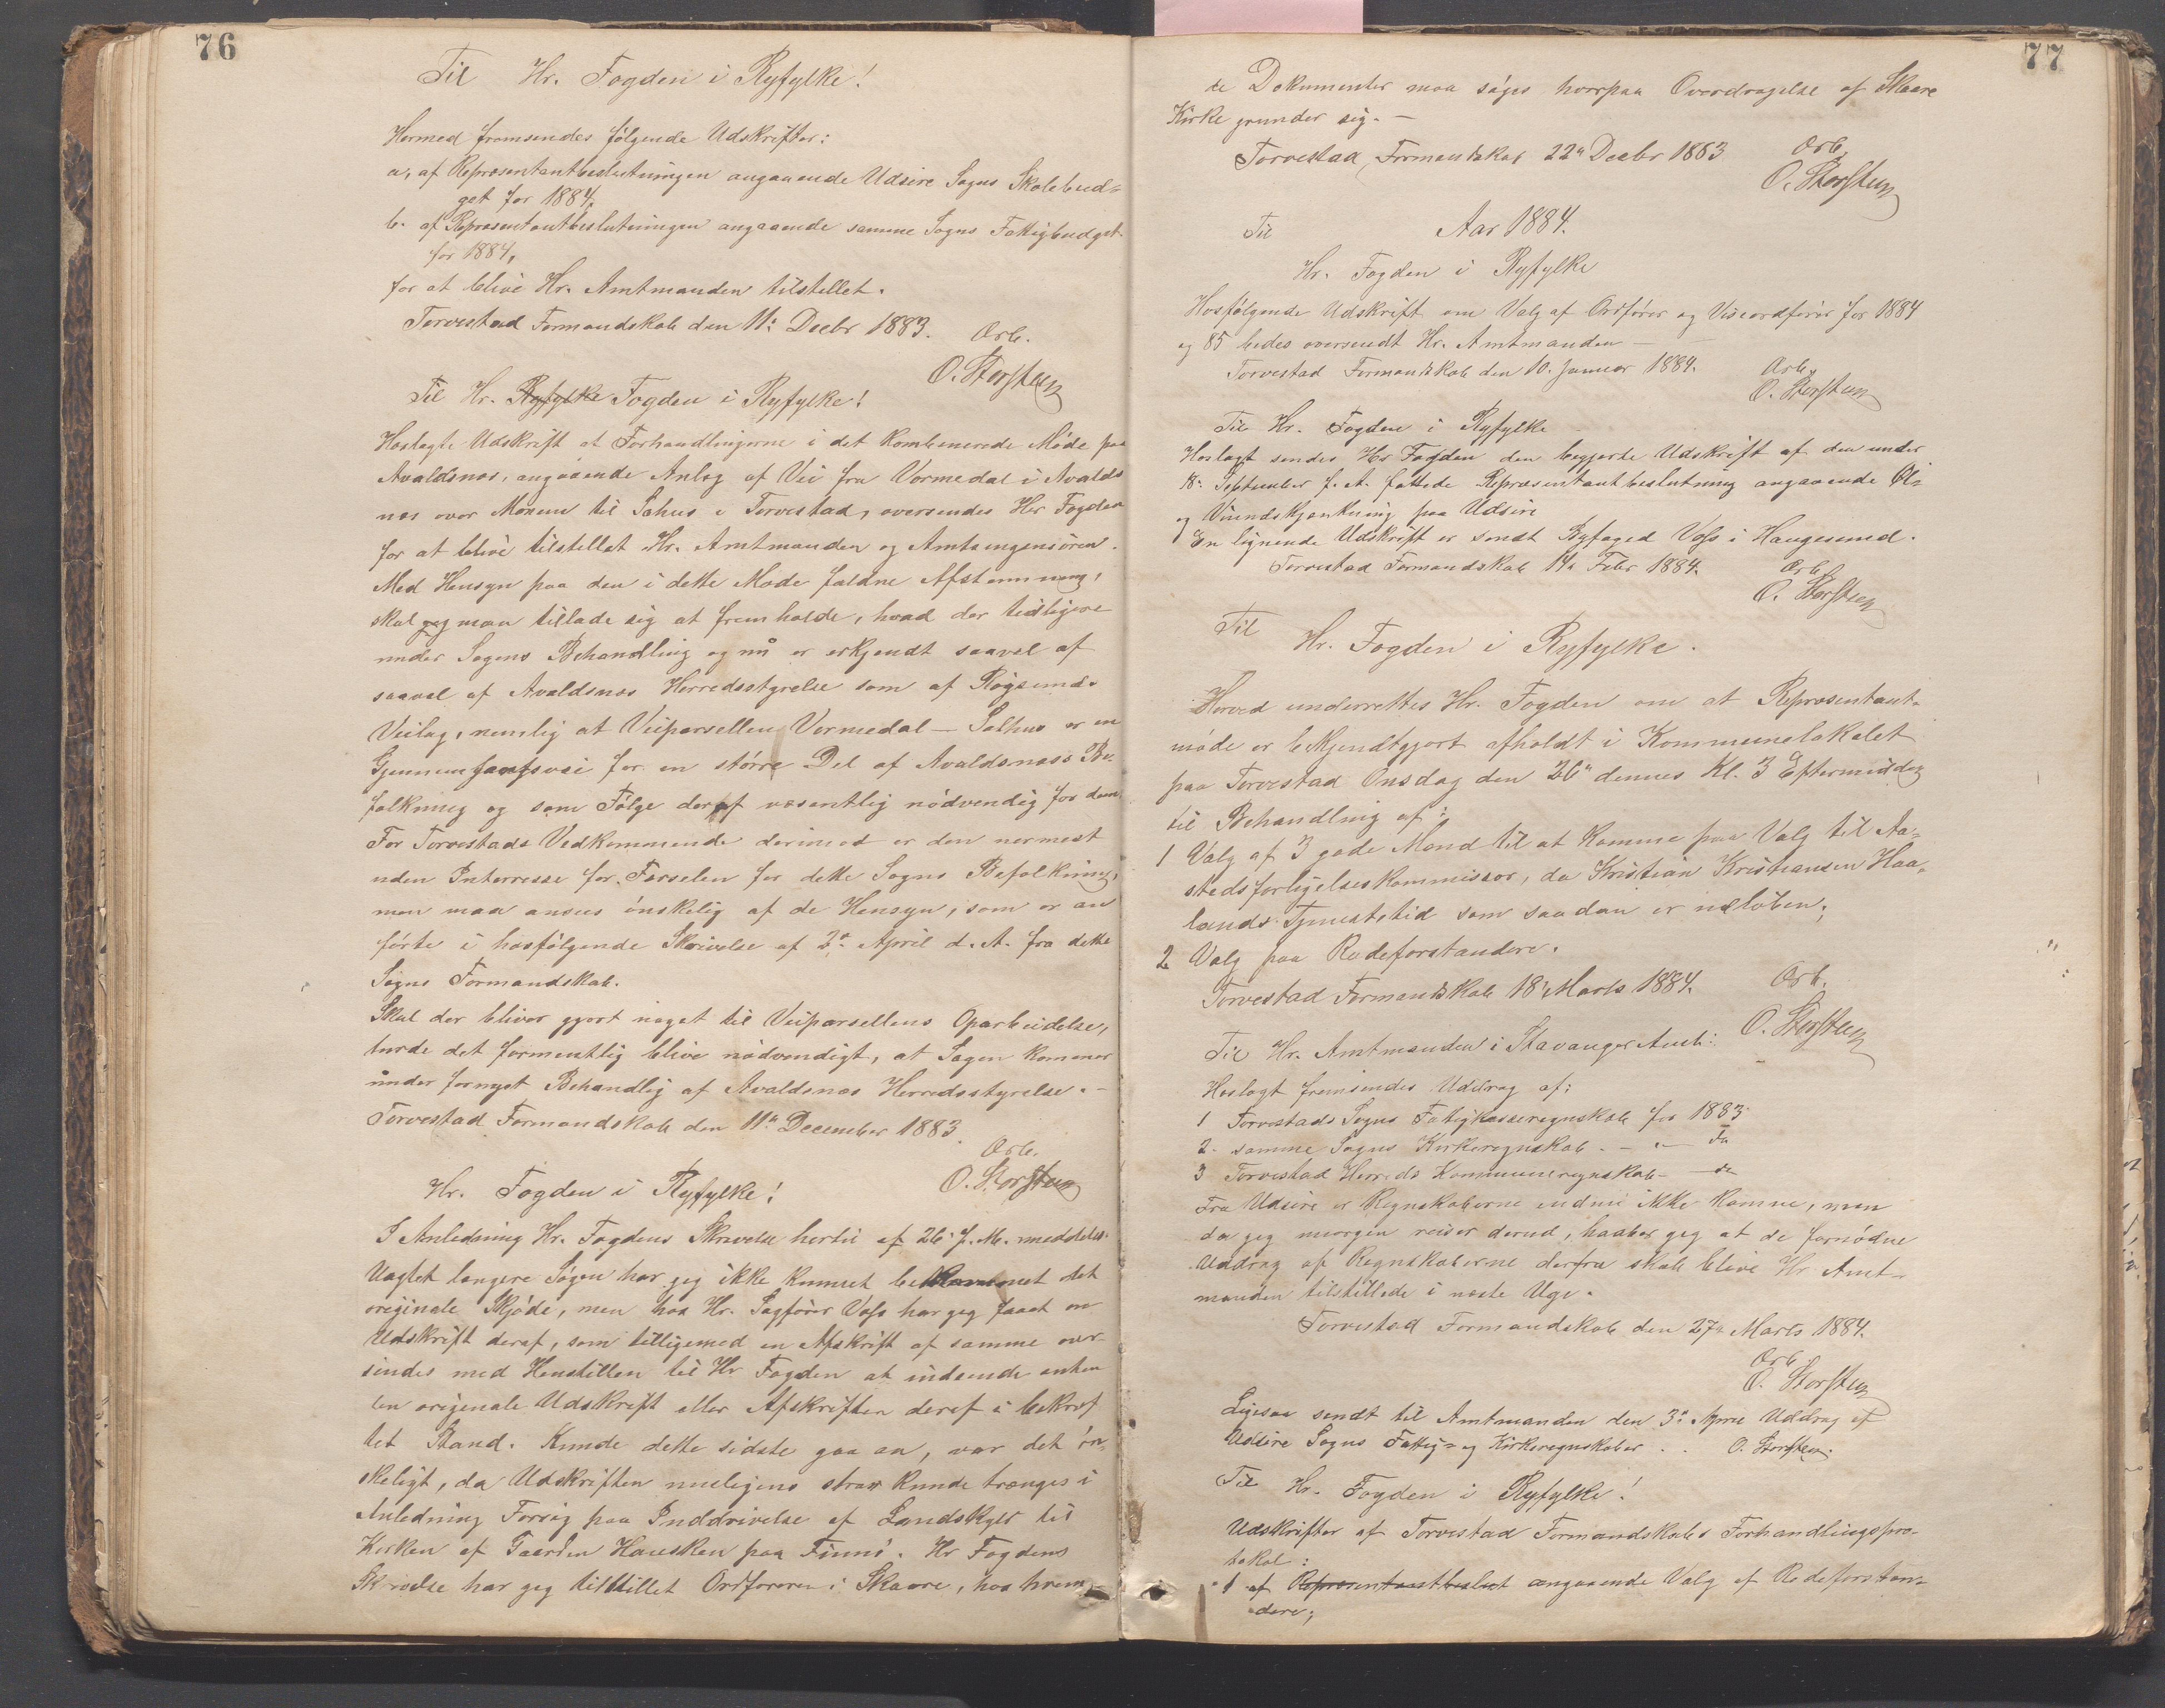 76
Til Hr. Fogden i Ryfylke!
Hermed fremsendes følgende Udskrifter:
a, af Repræsentantbeslutningen angaaende Udsire Sogns Skolebud-
get for 1884,
b. af Repræsentantbeslutningen angaaende samme Sogns Fattigbudget
for 1884,
for at blive Hr. Amtmanden tilstellet.
Torvestad Formandskab den 11: Decbr 1883.
Ærb.
O. Storsteen
Til Hr. Ryfylke Fogden i Ryfylke!
Hoslagte Udskrift at Forhandlingerne i det kombinerede Møde paa
Avaldsnæs, angaaende Anlæg af Vei fra Vormedal i Avalds
næs over Moxene til Salhus i Torvestad, oversendes Hr Fogden
for at blive tilstellet Hr. Amtmanden og Amtsingeniøren.
Med Hensyn paa den i dette Møde faldne Afstemning,
skal jeg man tillade sig at fremholde, hvad der tidligere
under Sagens Behandling og nu er erkjendt saavel af
saavel af Avaldsnæs Herredsstyrelse som af Røgsunds
Veilag, nemlig at Veiparsellen Vormedal — Salhus er en
Gjennemfartsvei for en større Del af Avaldsnæss Be-
folkning og som Følge deraf væsentlig nødvendig for dem.
For Torvestads Vedkommende derimod er den nærmest
uden Interresse for Færselen for dette Sogns Befolkning,
men maa ansees ønskelig af de Hensyn, som er an
førte i hosfølgende Skrivelse af 2den April d. A. fra dette
Sogns Formandskab.
Skal der bliver gjort noget til Veiparsellens Oparbeidelse,
turde det formentlig blive nødvendigt, at Sagen kommer
under fornyet Behandlig af Avaldsnæs Herredsstyrelse. —
Torvestad Formandskab den 11te December 1883.
Ærb.
O. Storsteen
Hr. Fogden i Ryfylke!
I Anledning Hr. Fogdens Skrivelse hertil af 26. f. M. meddeles:
Uagtet længere Søgen har jeg ikke kunnet bekommet det
originale Skjøde, men hos Hr. Sagfører Voss har jeg faaet en
Udskrift deraf, som tilligemed en Afskrift af samme over-
sendes med Henstillen til Hr Fogden at indsende enten
den originale Udskrift eller Afskriften deraf i bekræf
tet Stand. Kunde dette sidste gaa an, var det øn-
skeligt, da Udskriften mueligens strax kunde trænges i
Anledning Forsøg paa Inddrivelse af Landskyld til
Kirken af Gaarden Hausken paa Finnø. Hr Fogdens
Skrivelse har jeg tilstillet Ordføreren i Skaare, hos hvem
77
de Dokumenter maa søges hvorpaa Overdragelse af Skaare
Kirke grunder sig. —
Torvestad Formandskab 22de Decbr 1883
Ærb.
O. Storsteen
Aar 1884.
Til
Hr. Fogden i Ryfylke
Hosfølgende Udskrift om Valg af Ordfører og Viseordfører for 1884
og 85 bedes oversendt Hr. Amtmanden —
Torvestad Formandskab den 10. Januar 1884.
Ærb.
O. Storsteen
Til Hr. Fogden i Ryfylke
Hoslagt sendes Hr Fogden den begjærte Udskrift af den under
18. September f. A. fattede Repræsentantbeslutning angaaende Øl-
og Vinudskjænkning paa Udsire
En lignende Udskrift er sendt Byfoged Voss i Haugesund.
Torvestad Formandskab 14de Febr 1884.
Ærb.
O. Storsteen
Til Hr. Fogden i Ryfylke.
Herved underrettes Hr. Fogden om at Repræsentant-
møde er bekjendtgjort afholdt i Kommunelokalet
paa Torvestad Onsdag den 26de dennes Kl. 3 Eftermiddag
til Behandling af:
1 Valg af 3 gode Mænd til at komme paa Valg til Aa-
stedsforligelseskommissær, da Kristian Kristiansen Haa-
lands Tjenestetid som saadan er udløben;
2 Valg paa Rodeforstandere.
Torvestad Formandskab 18. Marts 1884.
Ærb.
O. Storsteen
Til Hr. Amtmanden i Stavanger Amt:
Hoslagt fremsendes Uddrag af:
1 Torvestads Sogns Fattigkasseregnskab for 1883
2. samme Sogns Kirkeregnskab. — " — do
3 Torvestad Herreds Kommuneregnskab — do
Fra Udsire er Regnskaberne endnu ikke komne, men
da jeg morgen reiser derud, haaber jeg at de fornødne
Uddrag af Regnskaberne derfra skal blive Hr Amt-
manden tilstillede i næste Uge.
Torvestad Formandskab den 27de Marts 1884.
Ærb.
O. Storsteen
Ligesaa sendt til Amtmanden den 3. April Uddrag af
Udsire Sogns Fattig- og Kirkeregnskaber . . O. Storsteen.
Til Hr. Fogden i Ryfylke!
Udskrifter af Torvestad Formandskabs Forhandlingspro-
tokol:
1 af Repræsentantbeslut angaaende Valg af Rodeforstan-
dere;